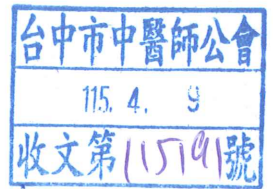 台中市中醫師公會
115. 4. 9
收文第115191號